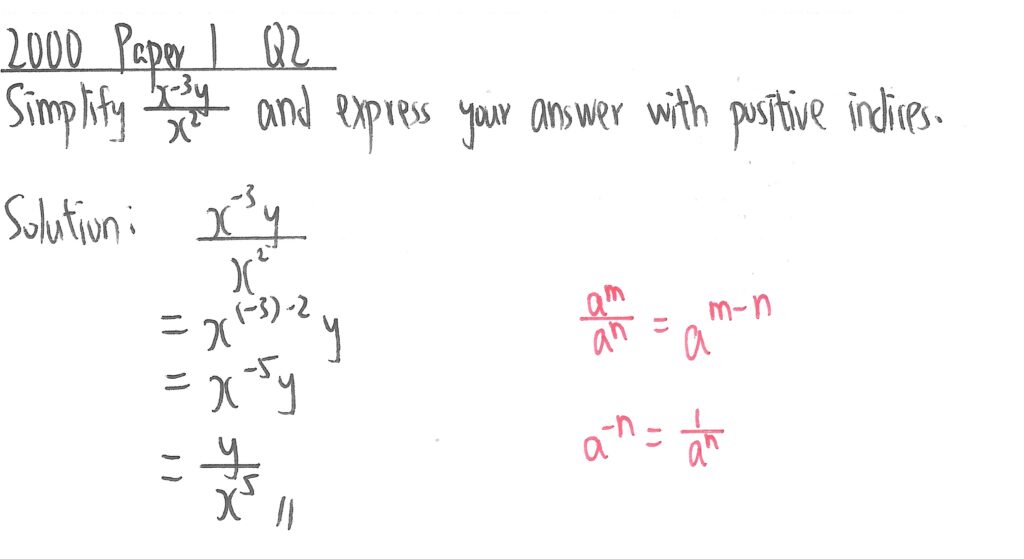 2000 Paper 1 Q2
Simplify x⁻³y/x² and express your answer with positive indices.
Solution: x⁻³y/x²
= x⁽⁻³⁾⁻² y
aᵐ/aⁿ = aᵐ⁻ⁿ
= x⁻⁵y
a⁻ⁿ = 1/aⁿ
= y/x⁵ //